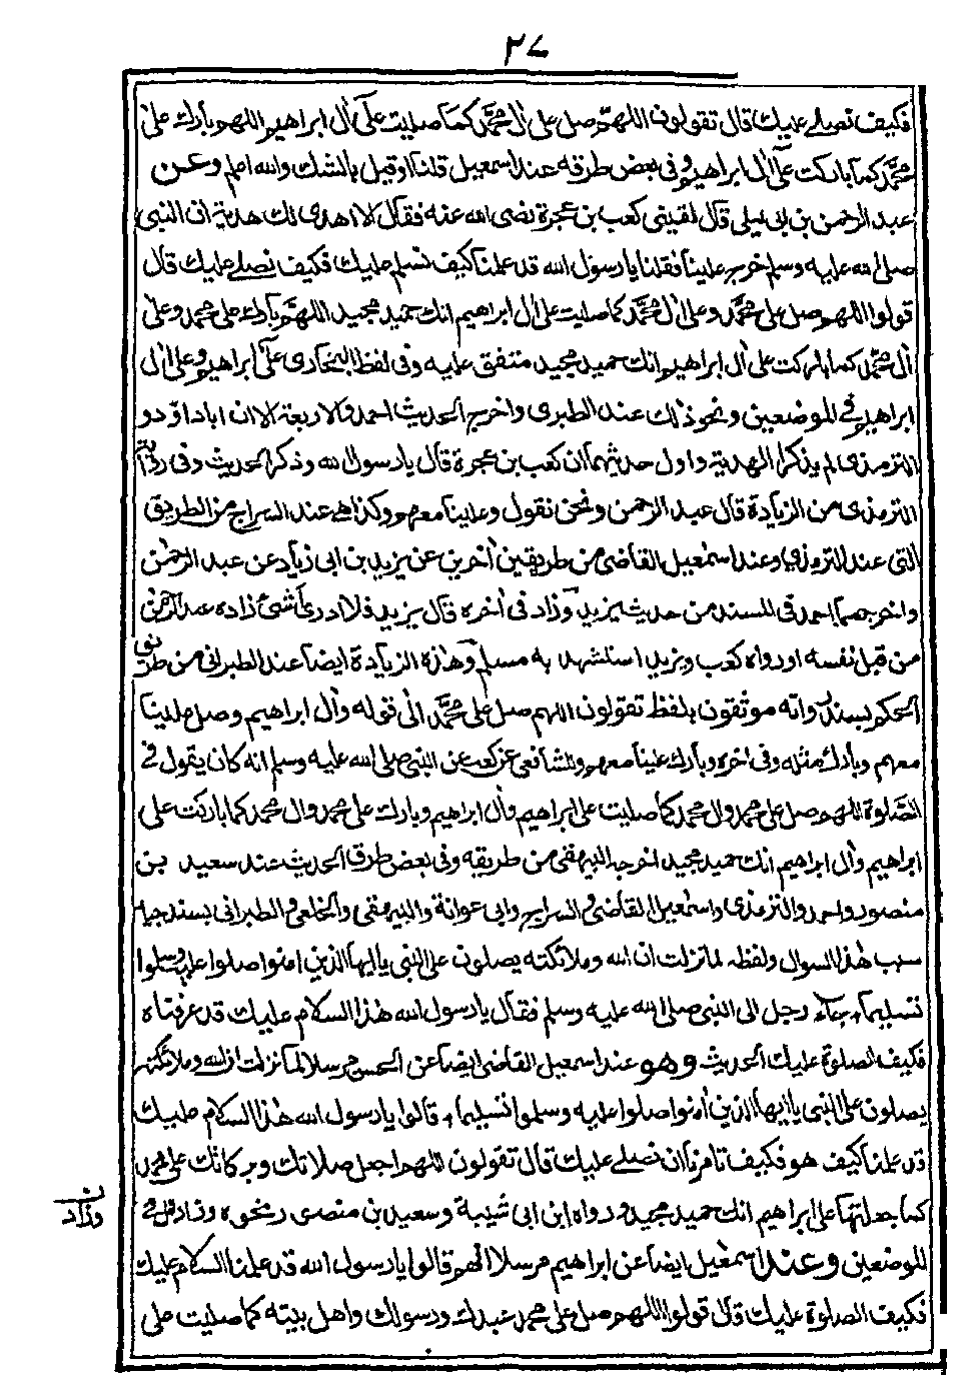 ٢٧
فكيف نصلے عليك قال تقولون اللهم صل على اٰل محمد كما صليت علٰى اٰل ابراهيم اللهم بارك على
محمد كما باركت علٰى اٰل ابراهيم وفى بعض طرقه عند اسمعيل قلنا او قيل بالشك والله اعلم وعن
عبد الرحمن بن ابى ليلى قال لقينى كعب بن عجرة رضى الله عنه فقال الا اهدى لك هدية ان النبى
صلى الله عليه وسلم خرج علينا فقلنا يا رسول الله قد علمنا كيف نسلم عليك فكيف نصلے عليك قال
قولوا اللهم صل على محمد وعلى اٰل محمد كما صليت على اٰل ابراهيم انك حميد مجيد اللهم بارك على محمد وعلى
اٰل محمد كما باركت على اٰل ابراهيم انك حميد مجيد متفق عليه وفى لفظ البخارى علٰى ابراهيم وعلى اٰل
ابراهيم فى الموضعين ونحو ذلك عند الطبرى واخرج الحديث احمد والاربعة الا ان ابا داؤد و
الترمذى لم يذكرا الهدية واول حديثهما ان كعب بن عجرة قال يا رسول الله وذكر الحديث وفى رواية
الترمذى من الزيادة قال عبد الرحمن ونحن نقول وعلينا معهم وكذا هى عند السراج من الطريق
التى عند الترمذى وعند اسمٰعيل القاضى من طريقين اٰخرين عن يزيد بن ابى زياد عن عبد الرحمٰن
واخرجها احمد فى المسند من حديث يزيد وزاد فى اٰخره قال يزيد فلا ادرى أشئ زاده عبد الرحمٰن
من قبل نفسه او رواه كعب ويزيد استشهد به مسلم وهذه الزيادة ايضا عند الطبرانى من طريق
الحكم بسند رواته موثقون بلفظ تقولون اللهم صل على محمد الى قوله واٰل ابراهيم وصل علينا
معهم وبارك مثله وفى اٰخره وبارك علينا معهم وللشافعى عن كعب عن النبى صلى الله عليه وسلم انه كان يقول فى
الصلوة اللهم صل على محمد واٰل محمد كما صليت على ابراهيم واٰل ابراهيم وبارك على محمد واٰل محمد كما باركت على
ابراهيم واٰل ابراهيم انك حميد مجيد اخرجه البيهقى من طريقه وفى بعض طرق الحديث عند سعيد بن
منصور واحمد والترمذى واسمعيل القاضى والسراج وابى عوانة والبيهقى والخلعى والطبرانى بسند جيد
سبب هٰذا السوال ولفظه لما نزلت ان الله وملائكته يصلون على النبى يا ايها الذين امنوا صلوا عليه وسلموا
تسليما جاء رجل الى النبى صلى الله عليه وسلم فقال يا رسول الله هٰذا السلام عليك قد عرفناه
فكيف الصلوة عليك الحديث وهو عند اسمعيل القاضى ايضا عن الحسن مرسلا لما نزلت ان الله وملائكته
يصلون على النبى يا ايها الذين اٰمنوا صلوا عليه وسلموا تسليما قالوا يا رسول الله هٰذا السلام عليك
قد علمنا كيف هو فكيف تامرنا ان نصلے عليك قال تقولون اللهم اجعل صلاتك وبركاتك على محمد
كما جعلتها على ابراهيم انك حميد مجيد ورواه ابن ابى شيبة وسعيد بن منصور بنحوه وزاد اٰل فى
الموضعين وعند اسمٰعيل ايضا عن ابراهيم مرسلا انهم قالوا يا رسول الله قد علمنا السلام عليك
فكيف الصلوة عليك قال قولوا اللهم صل على محمد عبدك ورسولك واهل بيته كما صليت على
وزاد